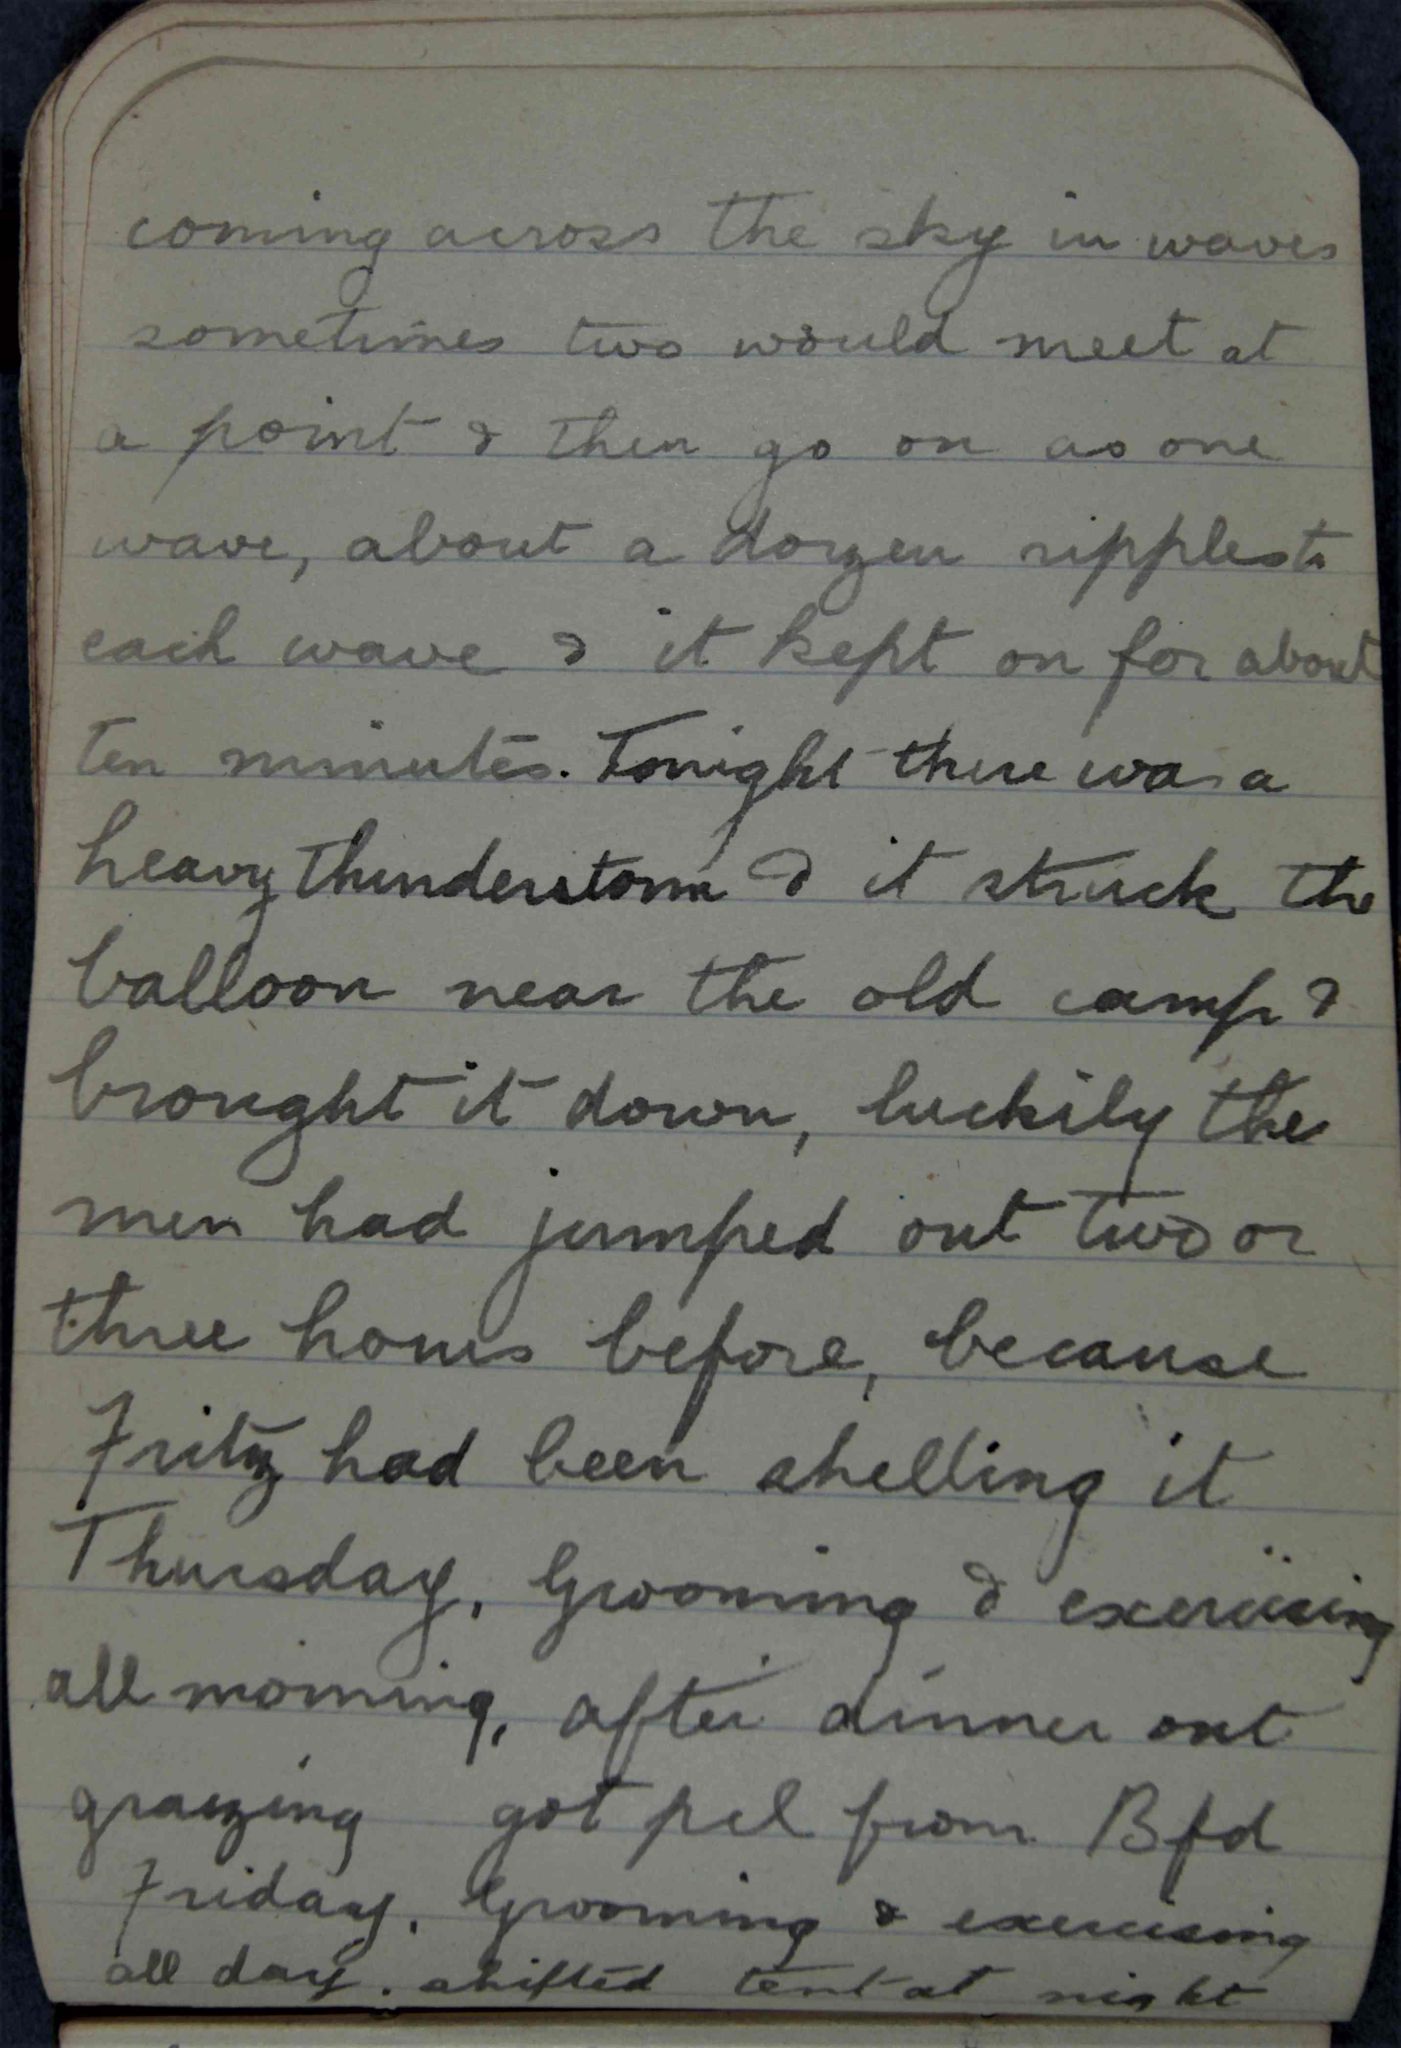 coming across the sky in waves
sometimes two would meet at
a point & then go on as one
wave, about a dozen ripples to
each wave & it kept on for about
ten minutes. Tonight there was a
heavy thunderstorm & it struck the
balloon near the old camp &
brought it down, luckily the
men had jumped out two or
three hours before, because
Fritz had been shelling it
Thursday, Grooming & exercising
all morning, after dinner out
grazing got pcl from Bfd
Friday, Grooming & exercising
all day. shifted tent at night